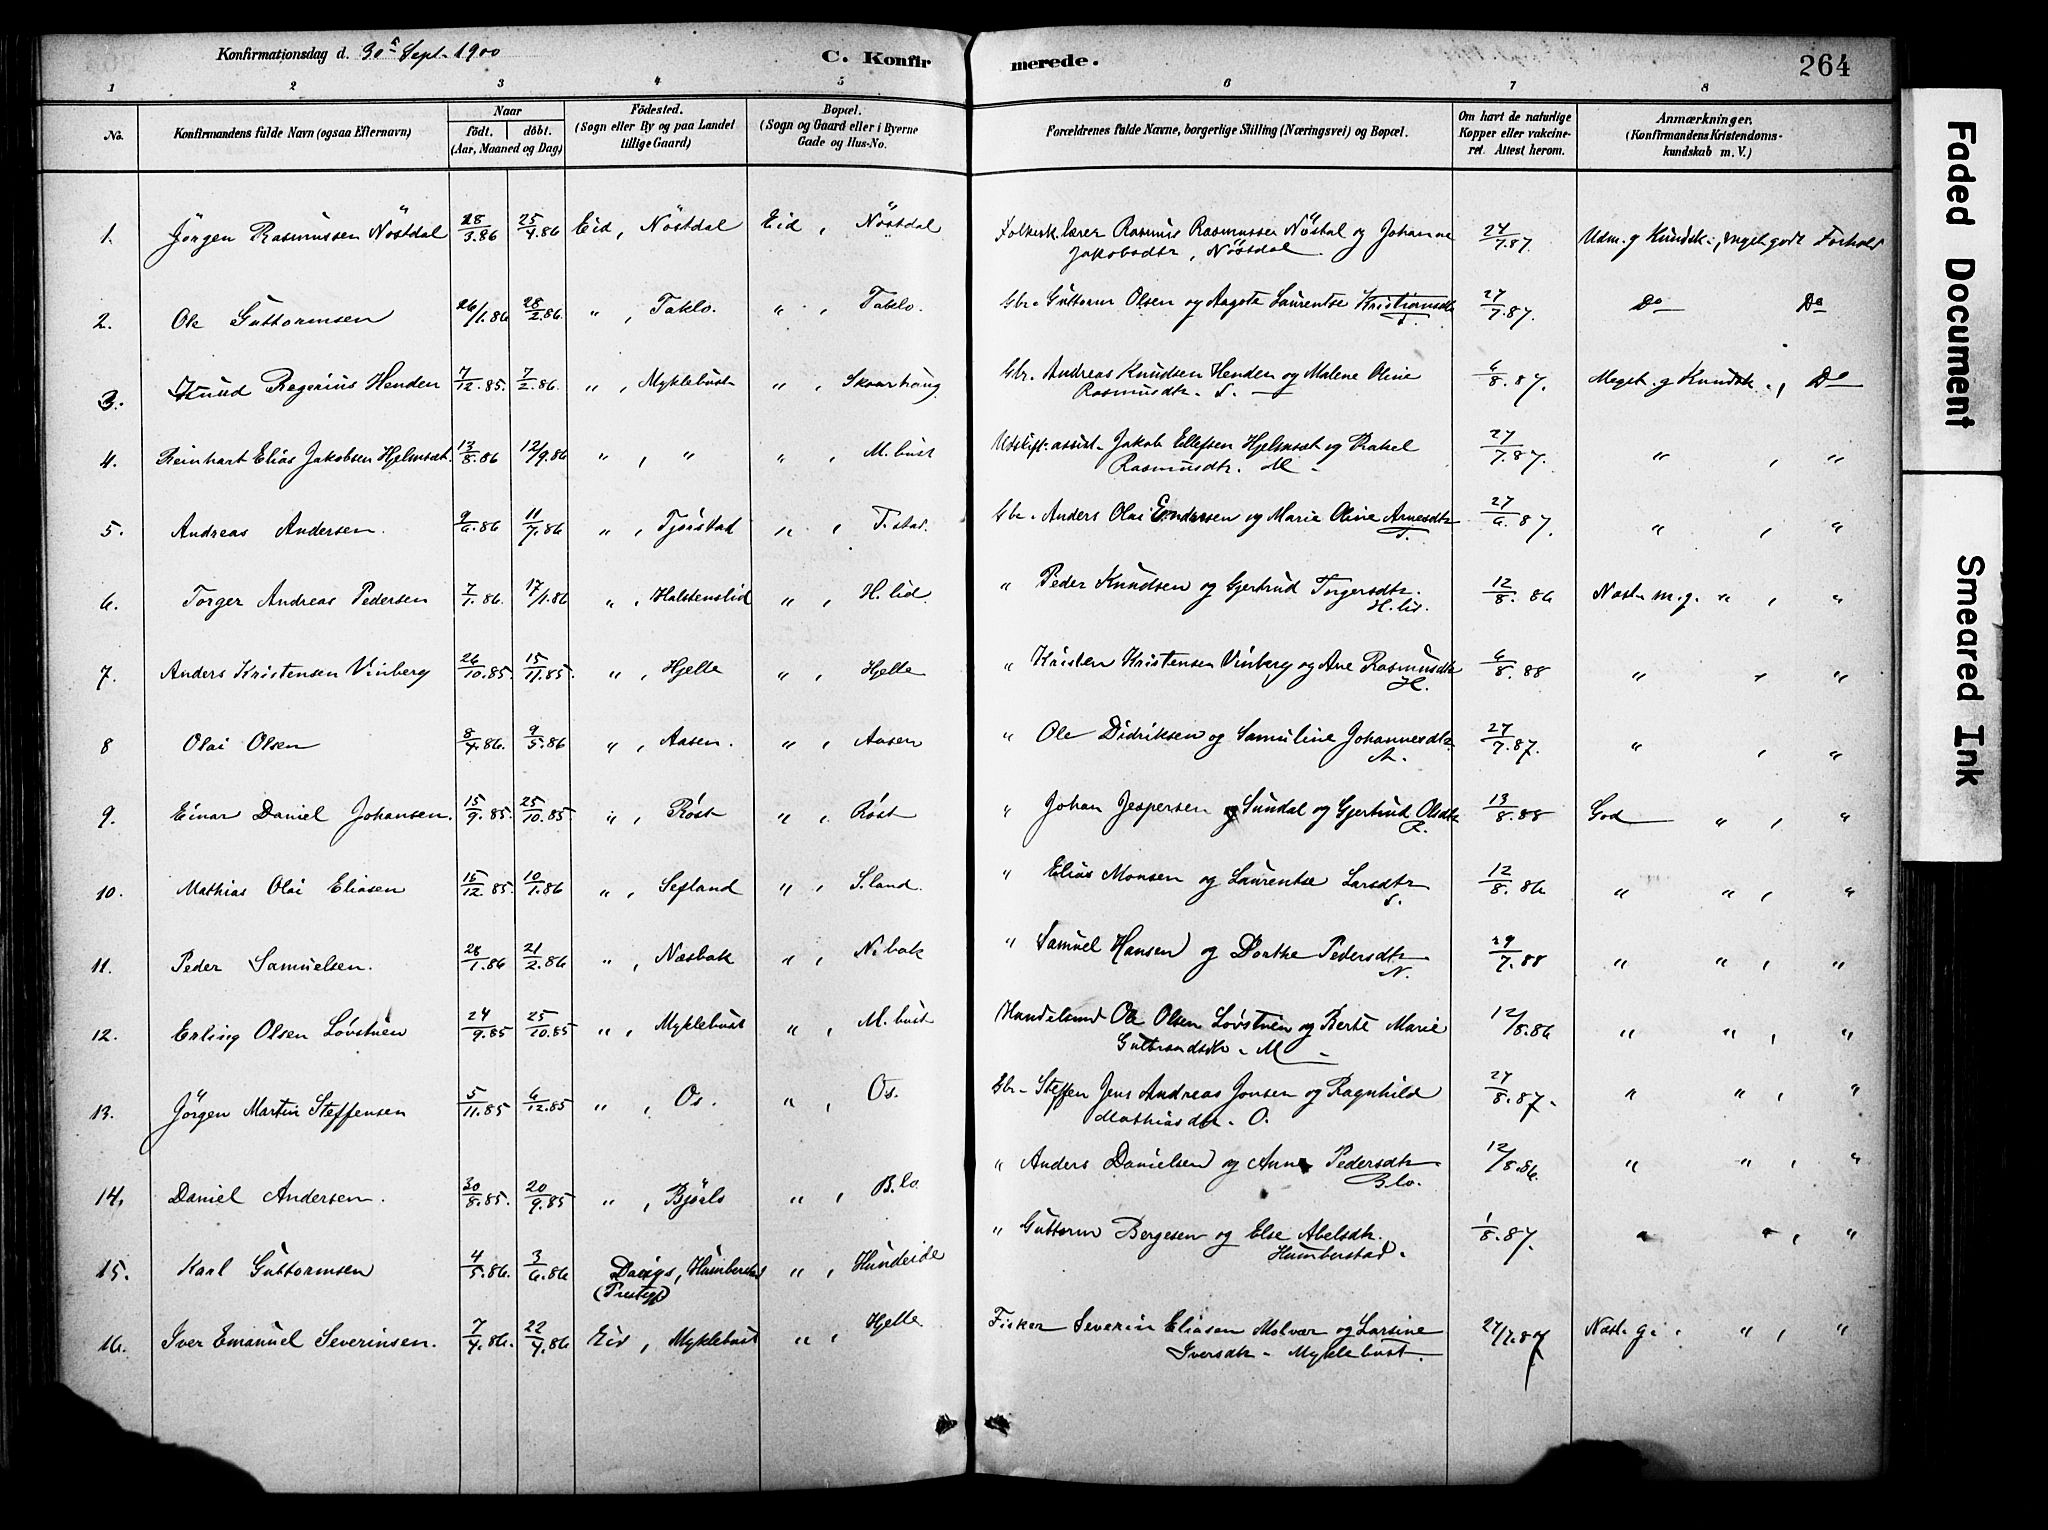 Konfirmationsdag d. 30 Sept. 1900 C. Konfirmerede. 264
1 2 3 4 5 6 7 8
No. Konfirmandens fulde Navn (ogsaa Efternavn) Naar født. døbt. (Aar, Maaned og Dag) Födested. (Sogn eller By og paa Landet tillige Gaard) Bopæl. (Sogn og Gaard eller i Byerne Gade og Hus-No. Forældrenes fulde Navne, borgerlige Stilling (Næringsvei) og Bopæl. Om havt de naturlige Kopper eller vakcineret. Attest herom. Anmærkninger. (Konfirmandens Kristendomskundskab m. V.)
1. Jörgen Rasmussen Nöstdal 28/3.86 25/4.86 Eid, Nöstdal Eid, Nöstdal Folkesk.lærer Rasmus Rasmussen Nöstal og Johanne 24/7.87. Udm. g Kundsk., meget godt Forhold
Jakobsdtr, Nöstdal.
2. Ole Guttormsen 26/1.86 28/2.86. " , Taklo. " , Taklo. Gbr. Guttorm Olsen og Aagote Laurentse Kristiansdtr 27/7.87. Do Do
T.
3. Knud Regerius Henden 7/12.85. 7/2.86. " , Myklebust " , Skaarhaug Gbr. Andreas Knudsen Henden og Malene Oline 6/8.87. Meget g Kundsk. , Do
Rasmusdtr. S.
4. Reinhart Elias Jakobsen Hjelmset. 13/8.86 12/9.86 " , " " , M.bust Udskift.assist. Jakob Ellefsen Hjelmset og Rakel 27/7.87. " , "
Rasmusdtr. M
5. Andreas Andersen. 9/6.86 11/7.86 " , Tjöistad " , T.stad. Gbr. Anders Olai Endresen og Marie Oline Arnesdtr 27/6.87. " , "
T.
6. Torger Andreas Pedersen 7/1.86. 17/1.86 " , Holstenslid " , H.lid. " Peder Knudsen og Gjertrud Torgersdtr. 12/8.86 Næst m.g. " , "
H.lid.
7. Anders Kristensen Vinberg 26/10.85 15/11.85. " , Hjelle " , Hjelle " Kristen Kristensen Vinberg og Ane Rasmusdtr 6/8.88 " , "
H.
8 Olai Olsen 8/4.86. 9/5.86 " , Aasen. " , Aasen " Ole Didriksen og Samuline Johannesdtr 27/7.87. " , "
A.
9. Einar Daniel Johansen. 15/9.85 25/10.85 " , Röst " , Röst " Johan Jespersen Sundal og Gjertrud Olsdtr 13/8.88 God " , "
R.
10. Mathias Olai Eliasen 15/12.85. 10/1.86 " , Sefland " , S.land " Elias Monsen og Laurentse Larsdtr 12/8.86 " " , "
S.
11. Peder Samuelsen. 28/1.86 21/2.86 " , Næsbak " , N.bak " Samuel Hansen og Dorthe Pedersdtr 29/7.88 " " , "
N.
12. Erling Olsen Lövstuen 24/9.85 25/10.85 " , Myklebust " , M.bust Handelsmd Ole Olsen Lövstuen og Berte Marie 12/8.86 " " , "
Gulbrandsdtr. M
13. Jörgen Martin Steffensen 5/11.85 6/12.85 " , Os. " , Os. Gbr. Steffen Jens Andreas Jonsen og Ragnhild 27/8.87. " " , "
Mathiasdtr. O.
14. Daniel Andersen. 30/8.85. 20/9.85 " , Bjørlo " , B.lo " Anders Danielsen og Anne Pedersdtr 12/8.86. " " , "
B.lo.
15. Karl Guttormsen 4/5.86. 3/6.86 Davigs, Humberstad " , Hundeide " Guttorm Bergesen og Else Abelsdtr. 1/8.87. " " , "
(Prestegj) Humberstad.
16. Iver Emanuel Severinsen. 7/4.86. 22/4.86 Eid, Myklebust " , Hjelle Fisker Severin Eliasen Molvær og Larsine 27/7.87 Næst. g. " , "
Iversdtr. Myklebust.
Faded Document
Smeared Ink